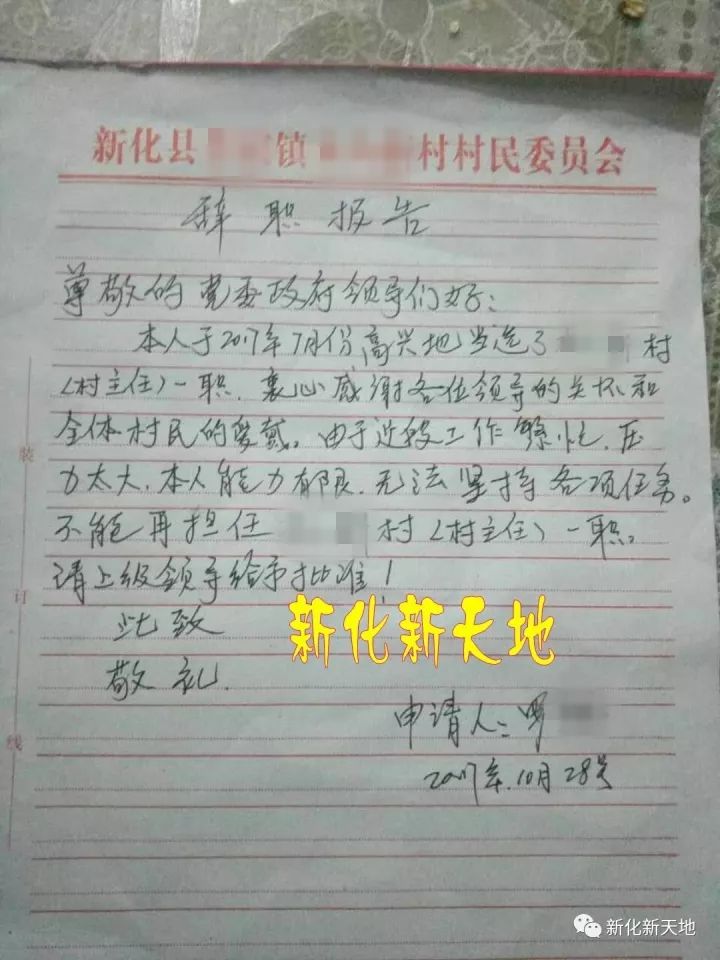 新化县 镇 村村民委员会
辞职报告
尊敬的党委政府领导们好:
本人于2017年7月份高兴地当选了 村
(村主任)一职.衷心感谢各位领导的关怀和
全体村民的爱戴。由于近段工作繁忙.压
力太大.本人能力有限.无法坚持各项任务。
不能再担任 村(村主任)一职。
请上级领导给予批准!
此致
敬礼.
申请人:罗
2017年.10月28号
装
订
线
新化新天地
新化新天地